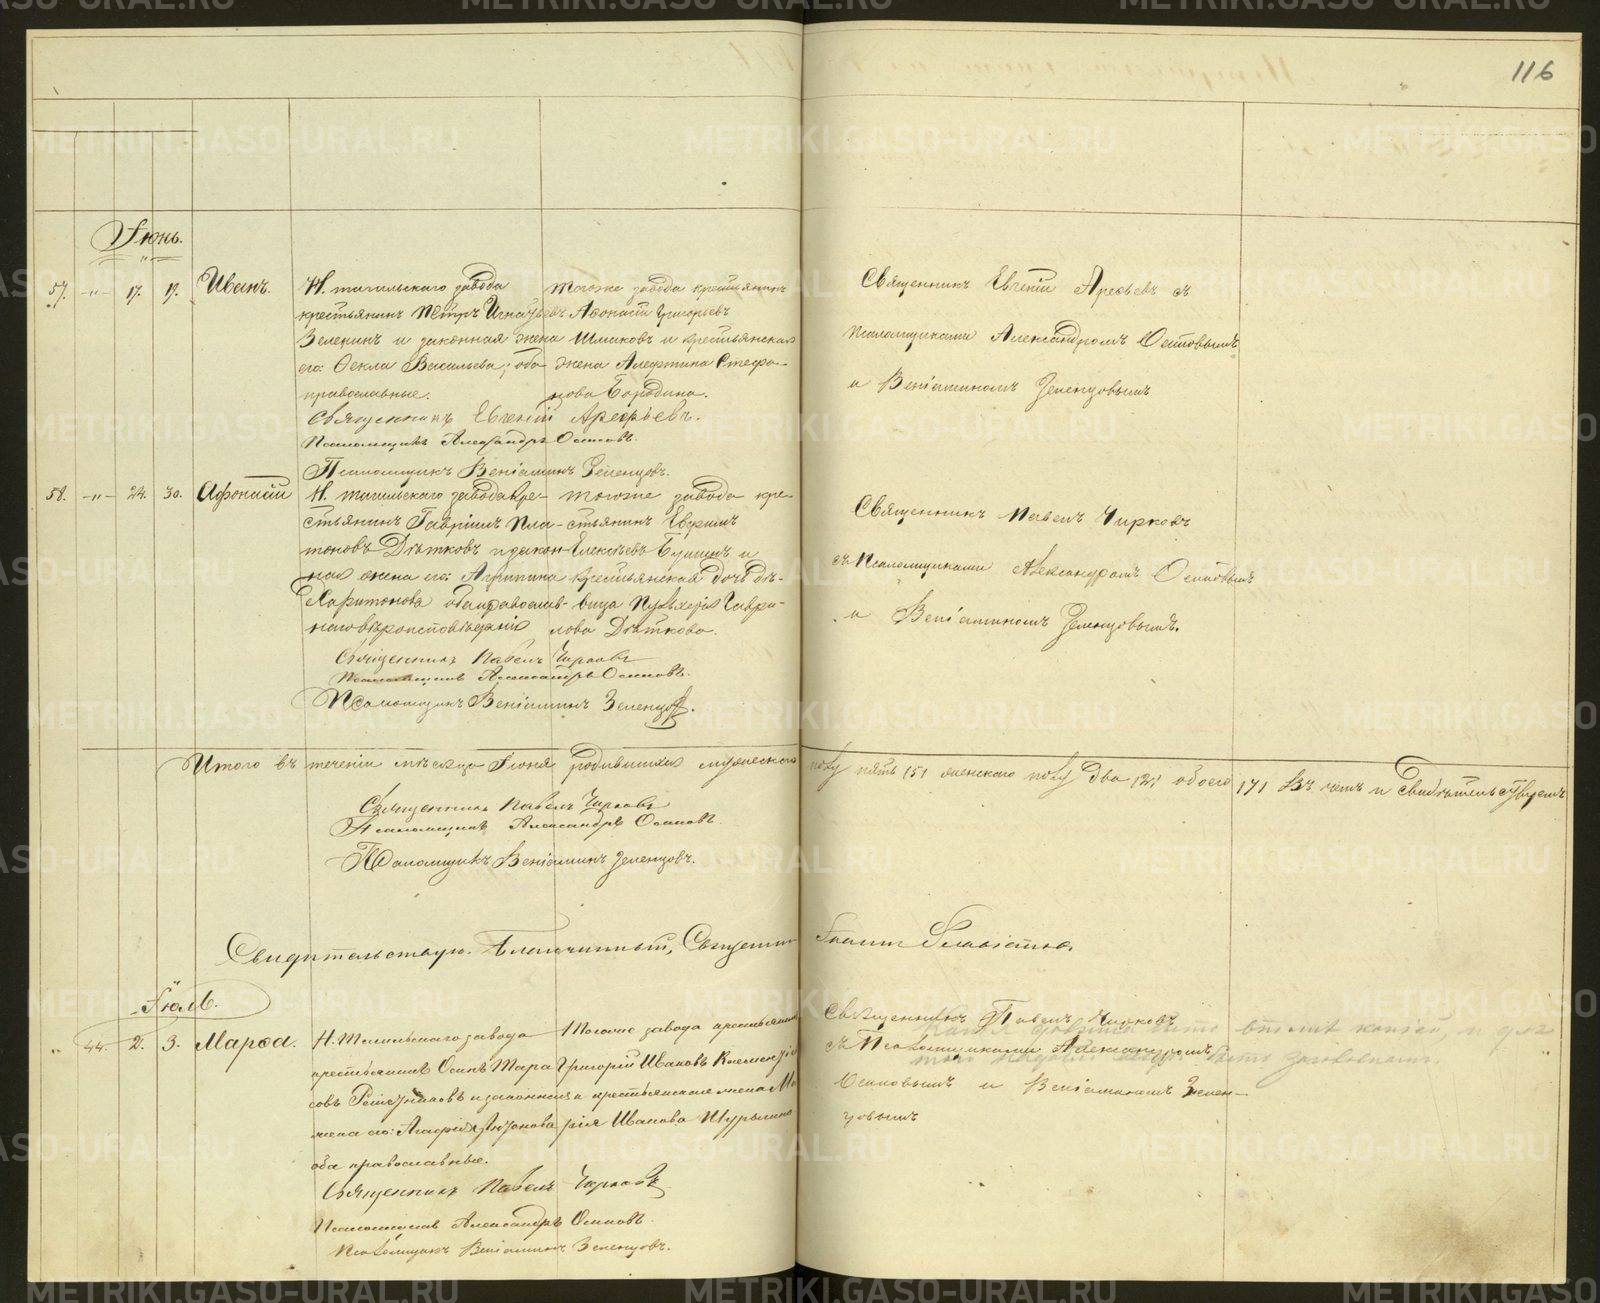 116
Іюнь.
57. -"- 17. 19. Иванъ.
Н. тагильскаго завода
крестьянинъ Петръ Игнатьевъ
Зеленинъ и законная жена
его Ѳекла Васильева; оба
православные.
тогоже завода крестьянинъ
Аѳонасій Григорьевъ
Шмаковъ и крестьянская
жена Алефтина Стефа-
нова Бородина.
Священникъ Евгеній Арефьевъ.
Псаломщикъ Александръ Осиповъ.
Псаломщикъ Веніаминъ Зеленцовъ.
Священникъ Евгеній Арефьевъ съ
псаломщиками Александромъ Осиповымъ
и Веніаминомъ Зеленцовымъ
58. -"- 24. 30. Афонасій
Н. тагильскаго завода кре-
стьянинъ Гавріилъ Пла-
тоновъ Дѣтковъ и закон-
ная жена его: Агрипина
Харитонова оба православ-
наго вѣроисповѣданія
тогоже завода кре-
стьянинъ
Елексѣевъ и
крестьянская дочь дѣ-
вица Пульхерія Гаври-
лова Дѣткова.
Священникъ Павелъ Чирковъ
Псаломщикъ Александръ Осиповъ.
Псаломщикъ Веніаминъ Зеленцовъ.
Священникъ Павелъ Чирковъ
съ Псаломщиками Александромъ Осиповымъ
и Веніаминомъ Зеленцовымъ.
Итого въ теченіи мѣсяца Іюня родившихся мужескаго полу пять /5/ женскаго полу два /2/ обоего /7/ Въ чемъ и свидѣтельствуемъ
Священникъ Павелъ Чирковъ
Псаломщикъ Александръ Осиповъ.
Псаломщикъ Веніаминъ Зеленцовъ.
Свидѣтельствую. Благочинный, Священникъ
Іюль.
44. 2. 3. Марѳа.
Н. Тагильскаго завода
крестьянинъ Осипъ Тара-
совъ и законная
жена его: Агафія
оба православные.
Тогоже завода крестьянинъ
Григорій Ивановъ
и крестьянская жена Ма-
рія Иванова
Священникъ Павелъ Чирковъ
Псаломщикъ Александръ Осиповъ.
Псаломщикъ Веніаминъ Зеленцовъ.
Священникъ Павелъ Чирковъ
съ Псаломщиками Александромъ
Осиповымъ и Веніаминомъ Зелен-
цовымъ
METRIKI.GASO-URAL.RU